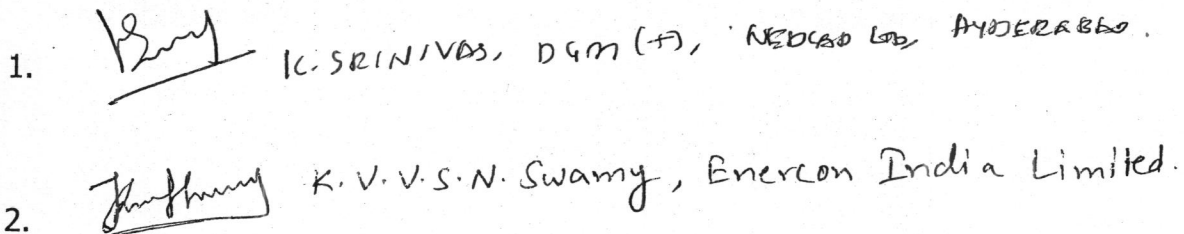 1. K. SRINIVAS, DGM (T), NEDCAP Ltd, HYDERABAD.
2. K. V. V. S. N. Swamy, Enercon India Limited.